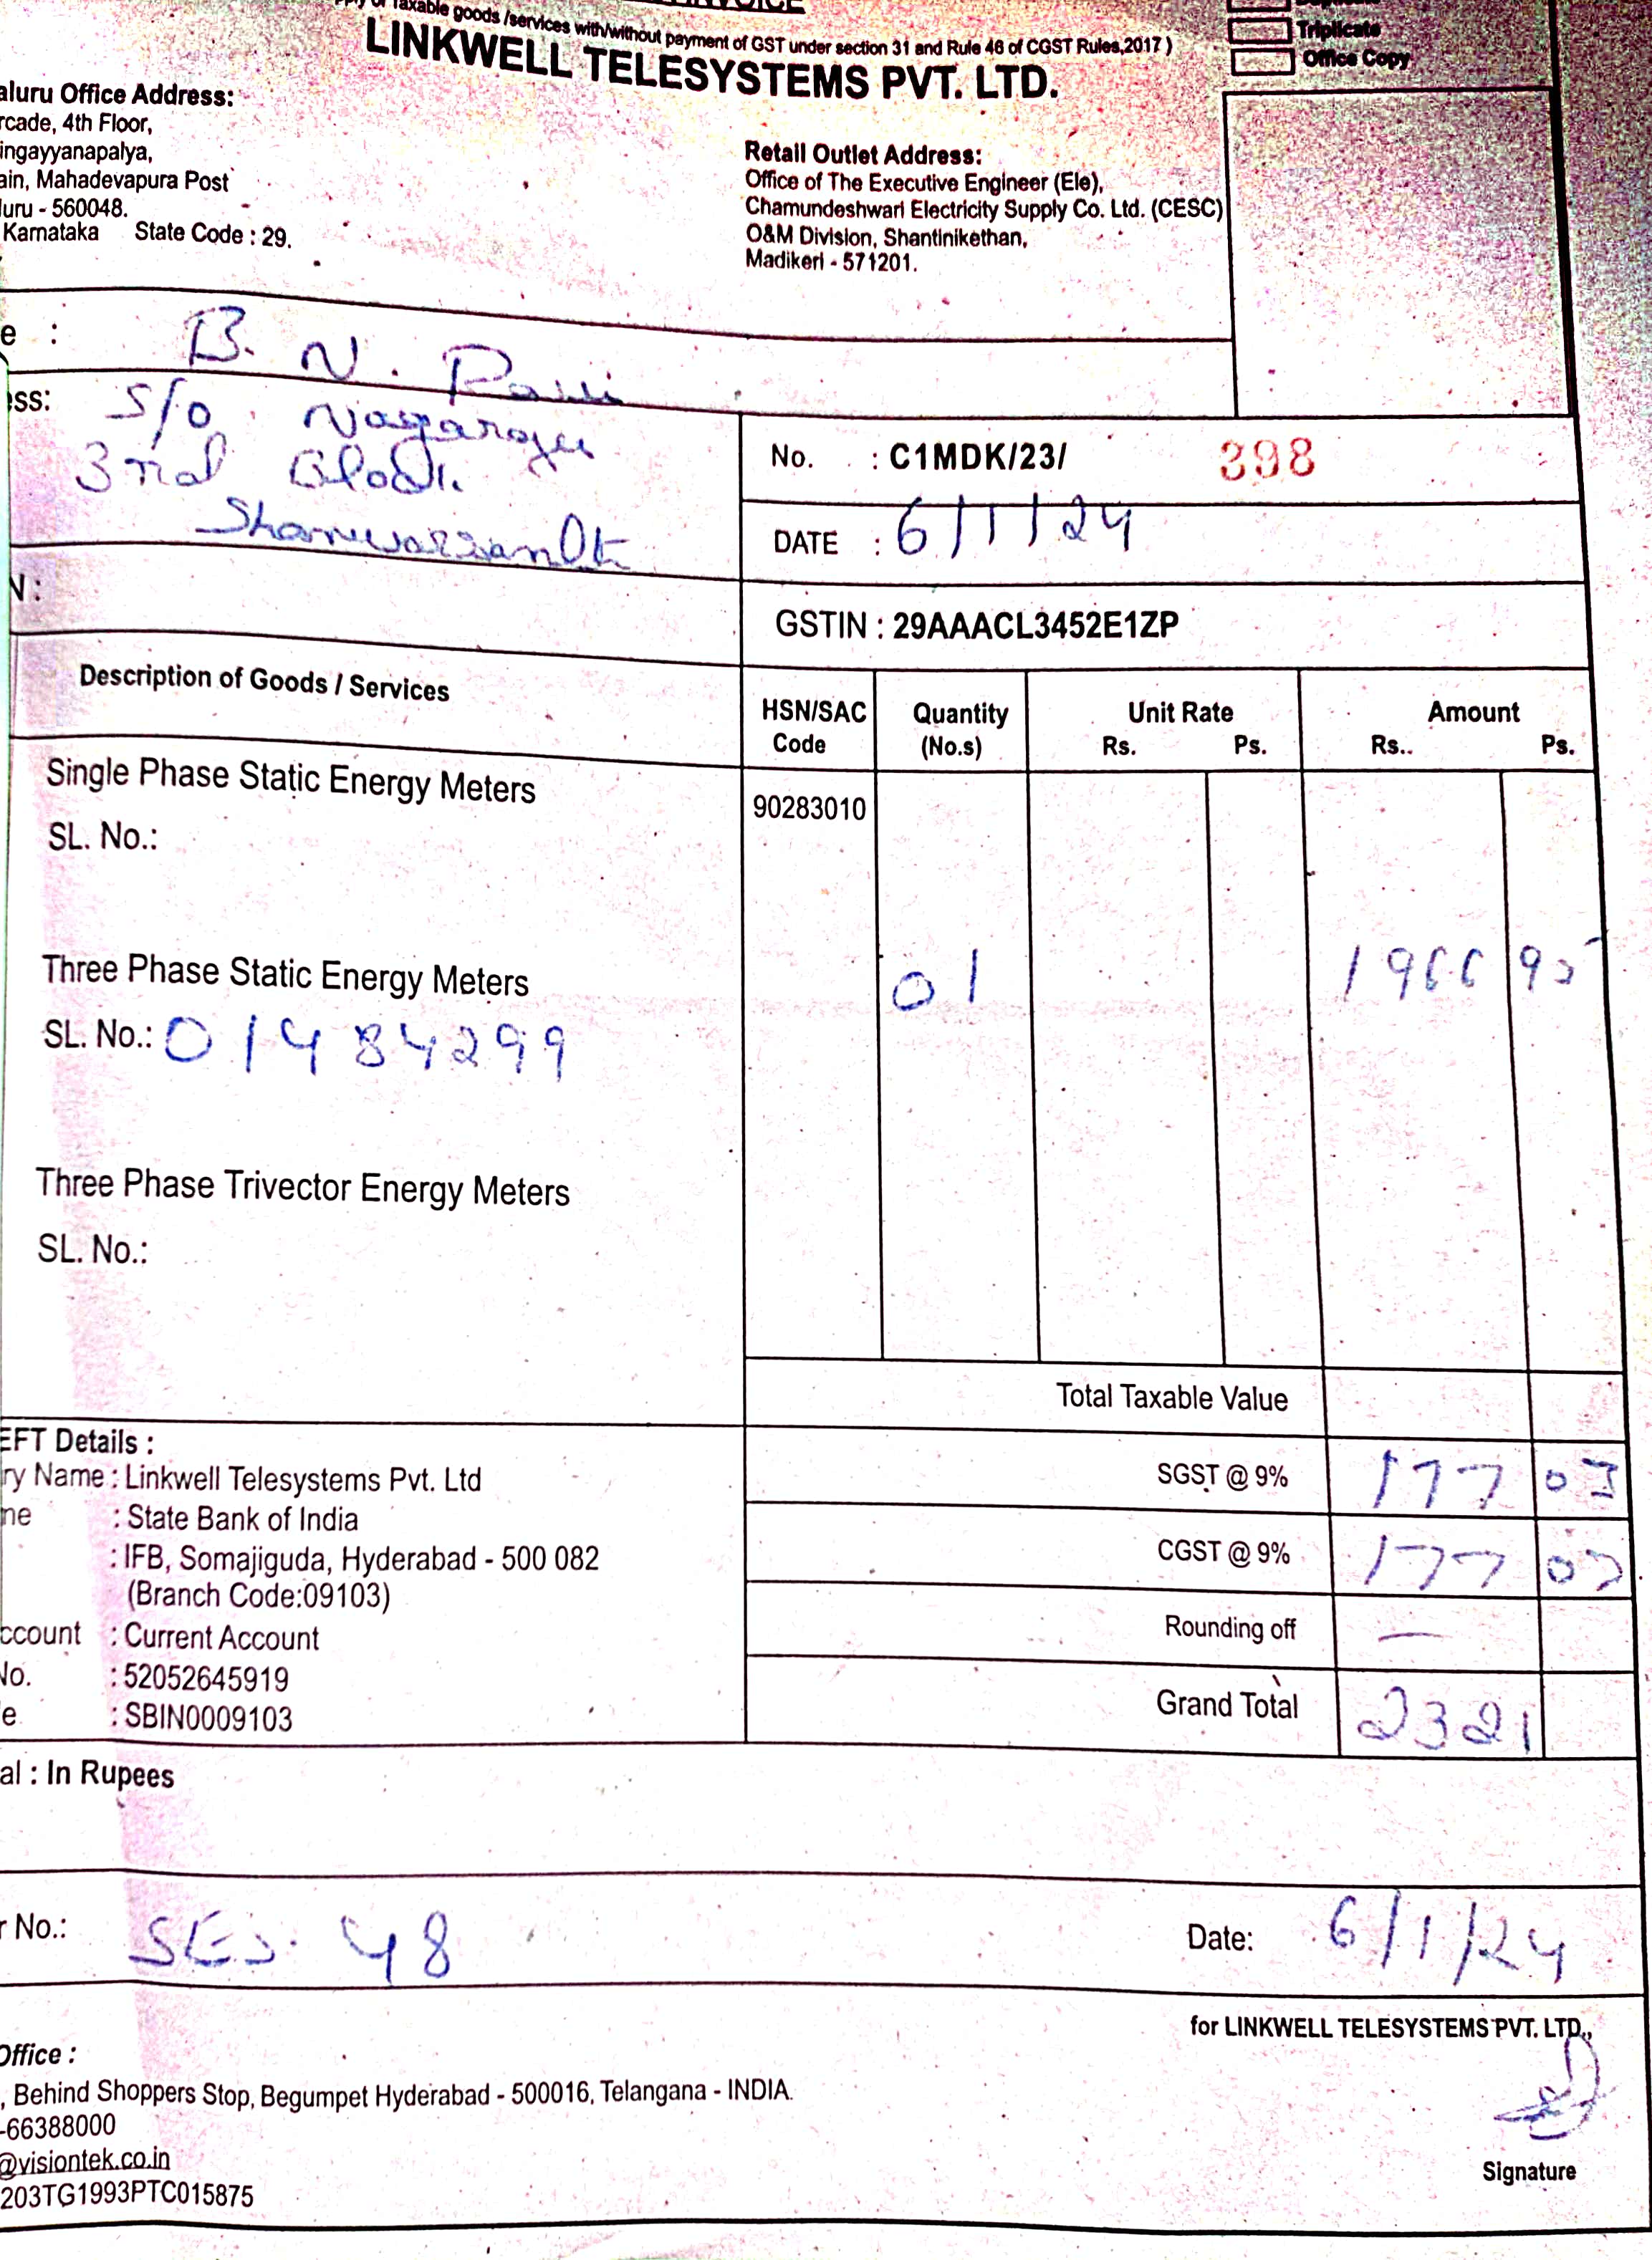 Taxable goods /services with/without payment of GST under section 31 and Rule 46 of CGST Rules,2017 )
Triplicate
Office Copy
LINKWELL TELESYSTEMS PVT. LTD.
aluru Office Address:
rcade, 4th Floor,
ingayyanapalya,
ain, Mahadevapura Post
luru - 560048.
Karnataka State Code : 29.
Retail Outlet Address:
Office of The Executive Engineer (Ele),
Chamundeshwari Electricity Supply Co. Ltd. (CESC)
O&M Division, Shantinikethan,
Madikeri - 571201.
e : B. N. Ravi
ess: S/o Nagaraju
3rd Block
No. : C1MDK/23/ 398
DATE : 6/1/24
N :
GSTIN : 29AAACL3452E1ZP
Description of Goods / Services
HSN/SAC Code
Quantity (No.s)
Unit Rate Rs. Ps.
Amount Rs.. Ps.
Single Phase Static Energy Meters
90283010
SL. No.:
Three Phase Static Energy Meters 01 1966 95
SL. No.: 01484299
Three Phase Trivector Energy Meters
SL. No.:
Total Taxable Value
SGST @ 9% 177 03
CGST @ 9% 177 03
Rounding off —
Grand Total 2321
EFT Details :
ry Name : Linkwell Telesystems Pvt. Ltd
me : State Bank of India
: IFB, Somajiguda, Hyderabad - 500 082
(Branch Code:09103)
ccount : Current Account
No. : 52052645919
e : SBIN0009103
al : In Rupees
r No.: 48
Date: 6/1/24
for LINKWELL TELESYSTEMS PVT. LTD.,
Office :
, Behind Shoppers Stop, Begumpet Hyderabad - 500016, Telangana - INDIA.
-66388000
@visiontek.co.in
203TG1993PTC015875
Signature